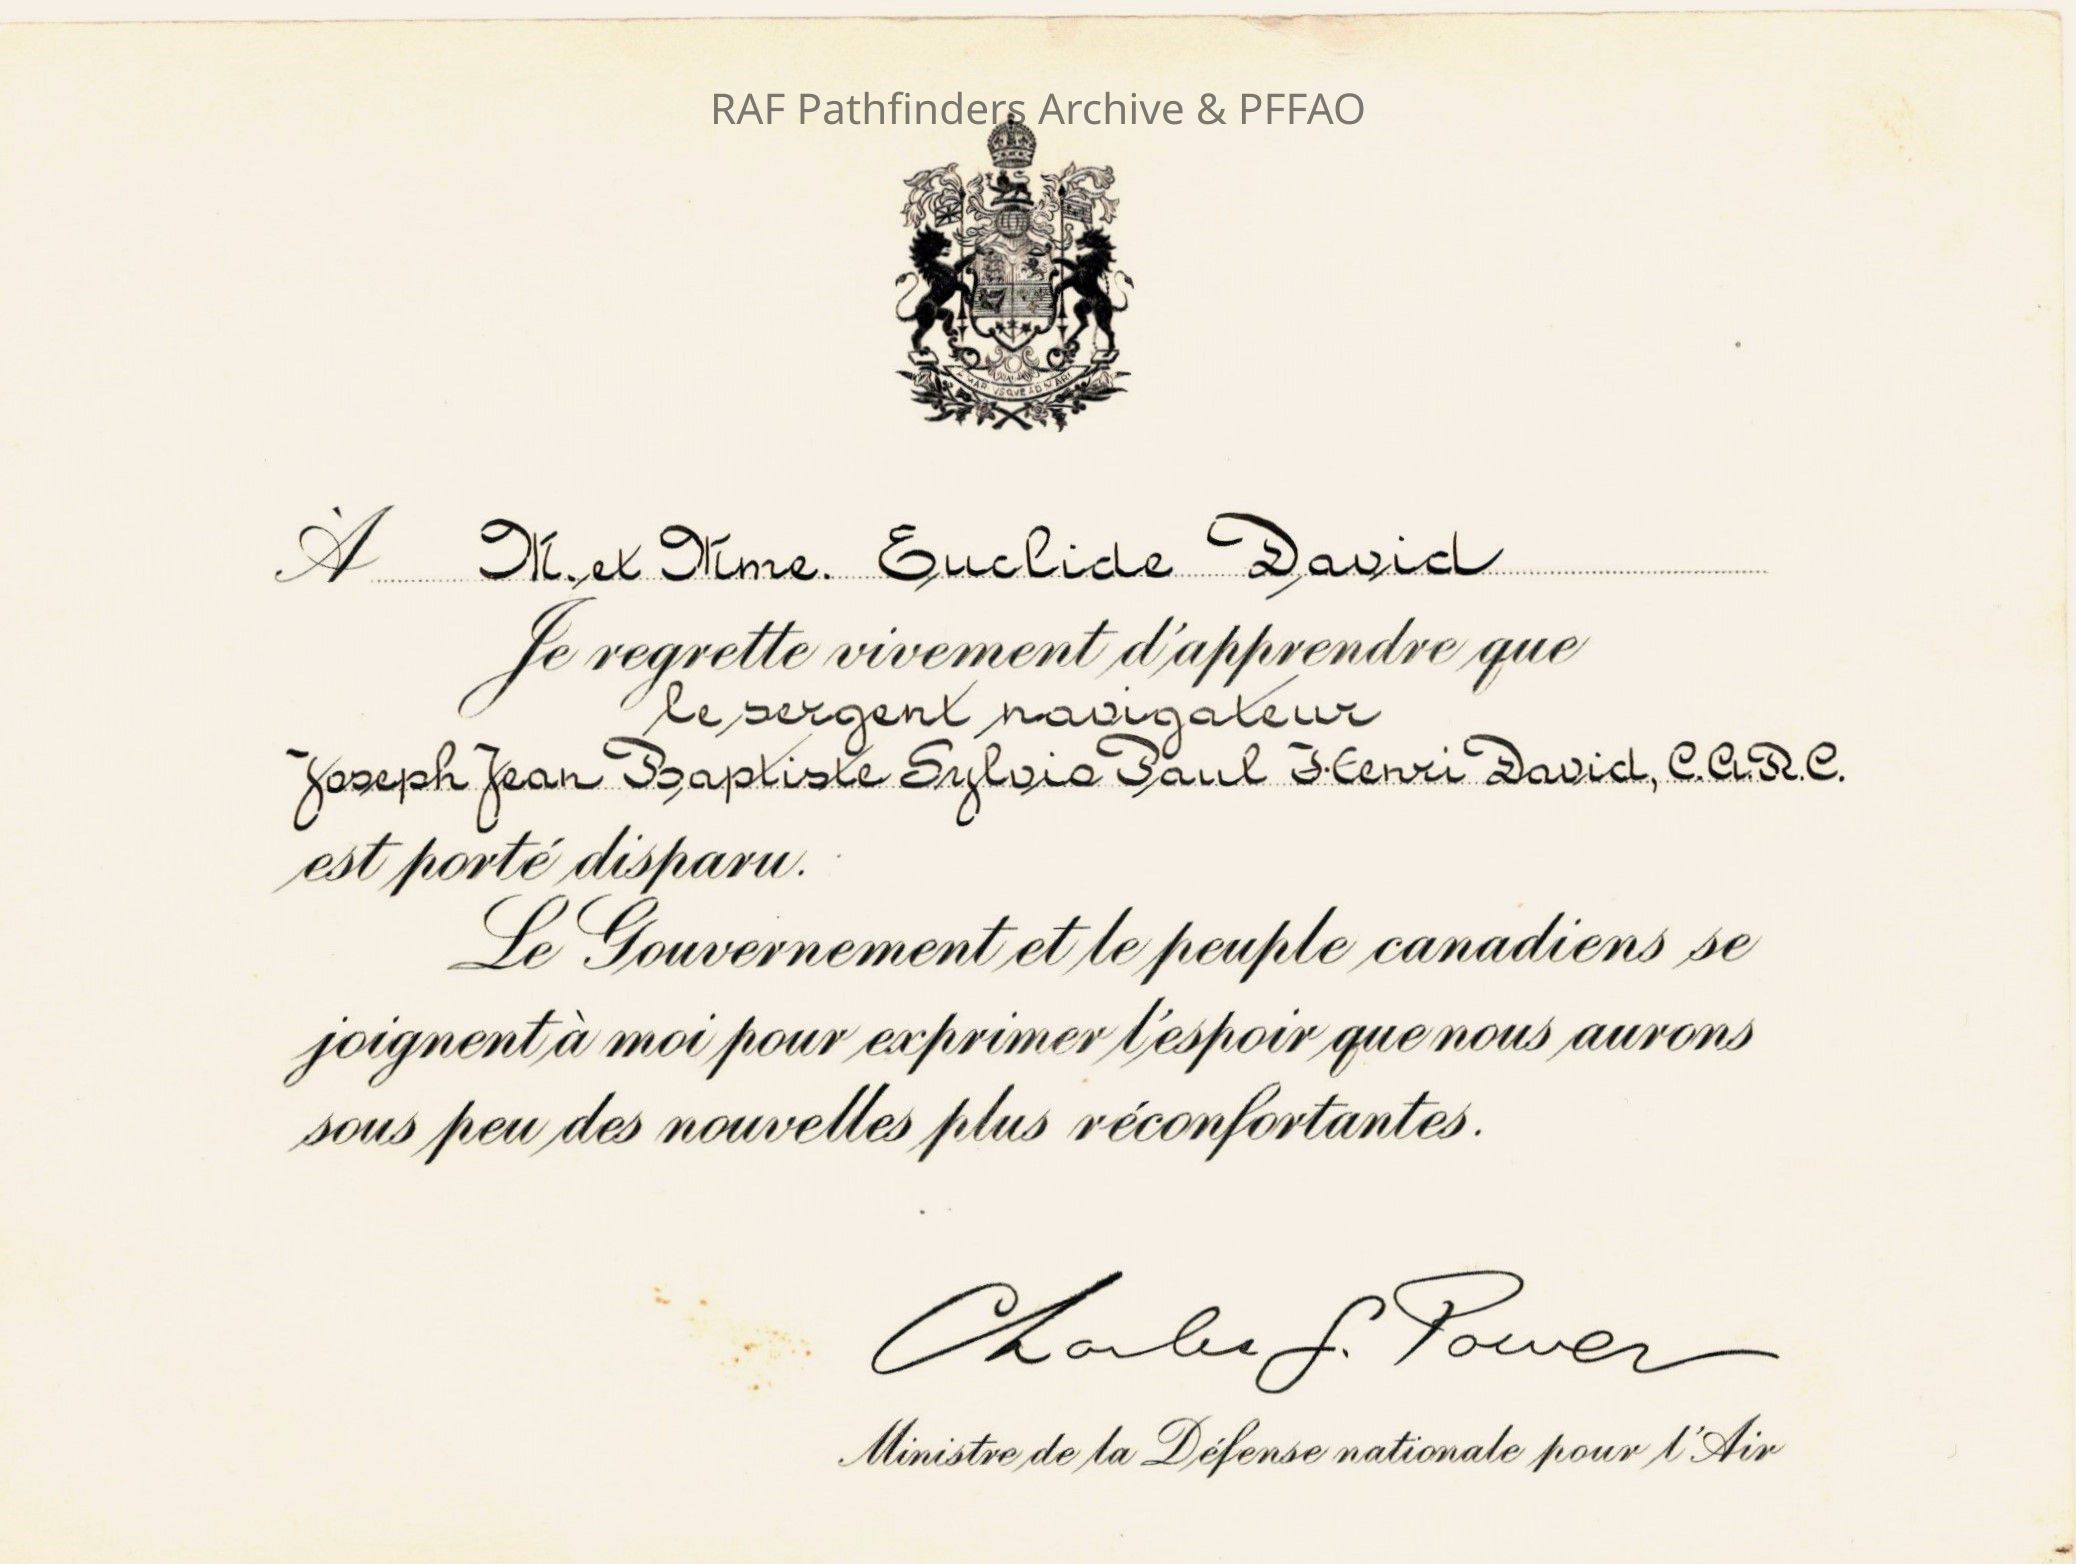 RAF Pathfinders Archive & PFFAO
A MARI USQUE AD MARE
À M. et Mme. Euclide David
Je regrette vivement d'apprendre que
le sergent navigateur
Joseph Jean Baptiste Sylvio Paul Henri David, C.A.R.C.
est porté disparu.
Le Gouvernement et le peuple canadiens se
joignent à moi pour exprimer l'espoir que nous aurons
sous peu des nouvelles plus réconfortantes.
Charles G. Power
Ministre de la Défense nationale pour l'Air